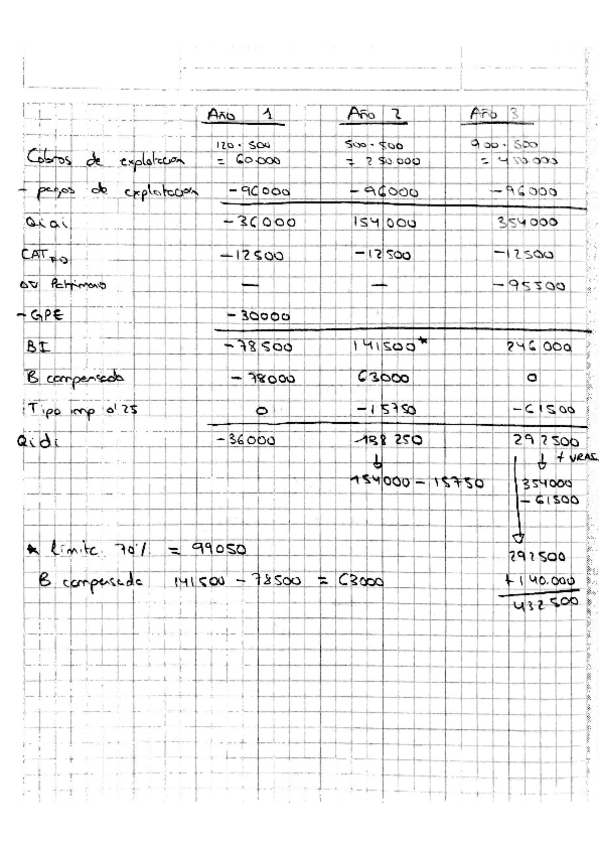 Año 1 Año 2 Año 3
120 · 500 500 · 500 900 · 500
Cobros de explotacion = 60.000 = 250.000 = 450.000
- pagos de explotacion -96000 -96000 -96000
Qiai -36000 154000 354000
CAT -12500 -12500 -12500
ΔV Patrimonio — — -95500
- GPE -30000
BI -78500 141500* 246000
B compensada -78000 63000 0
Tipo imp 0'25 0 -15750 -61500
Qidi -36000 138250 292500
+ VRAI
154000 - 15750 354000
- 61500
* limite 70% = 99050 292500
B compensada 141500 - 78500 = 63000 + 140.000
432500